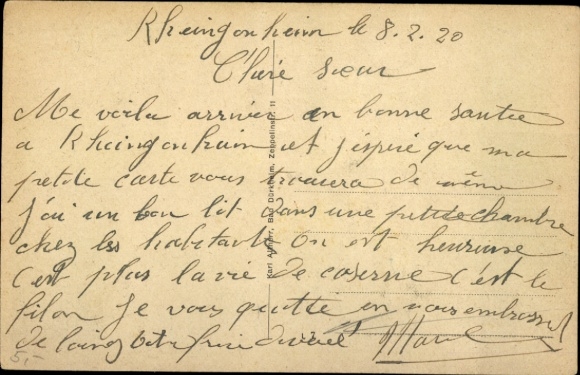 Rheingonheim le 8.2.20
Chère soeur
Me voila arriver en bonne santée
a Rheingonheim et j'espère que ma
petite carte vous trouvera de même
j'ai un bon lit dans une petite chambre
chez les habitants on est heureuse
c'est plus la vie de caserne c'est le
filon je vous quitte en vous embrassant
de loing votre frère
Karl Bad Dürkheim, Zeppelinstr. 11
5,-